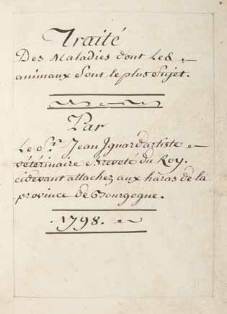 Traité
Des Maladies dont Les
animaux Sont le plus Sujet.
Par
Le Sr. Jean Ignard artiste
vétérinaire Breveté du Roy.
cidevant attachez aux hâras de la
province de Bourgogne.
1798.